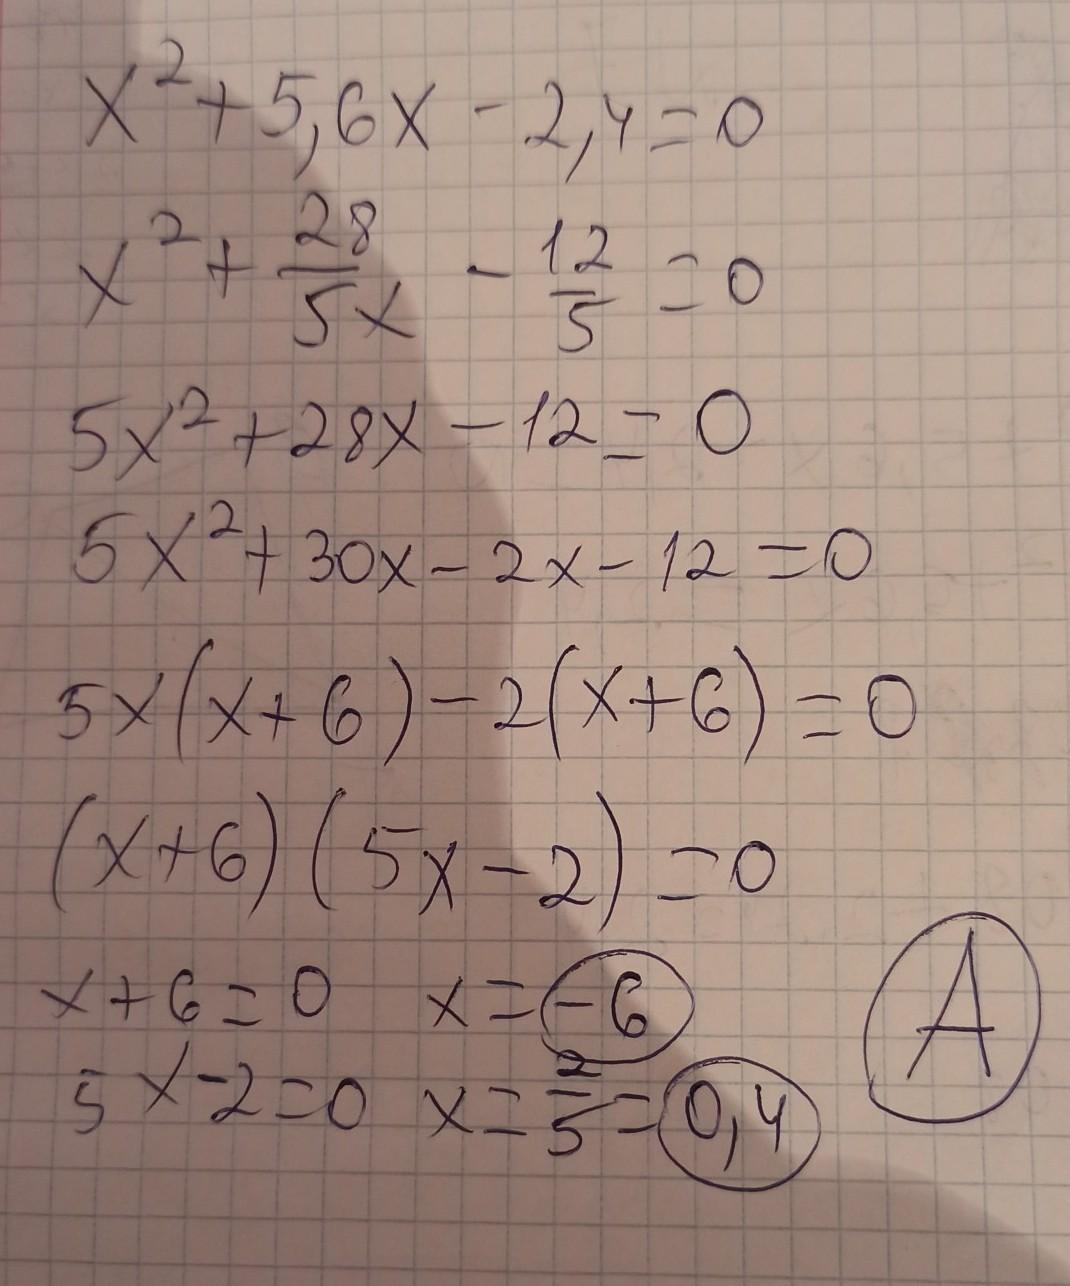 x² + 5,6x - 2,4 = 0
x² + 28/5x - 12/5 = 0
5x² + 28x - 12 = 0
5x² + 30x - 2x - 12 = 0
5x(x+6) - 2(x+6) = 0
(x+6)(5x-2) = 0
x+6=0 x=-6
5x-2=0 x=2/5=0,4
A